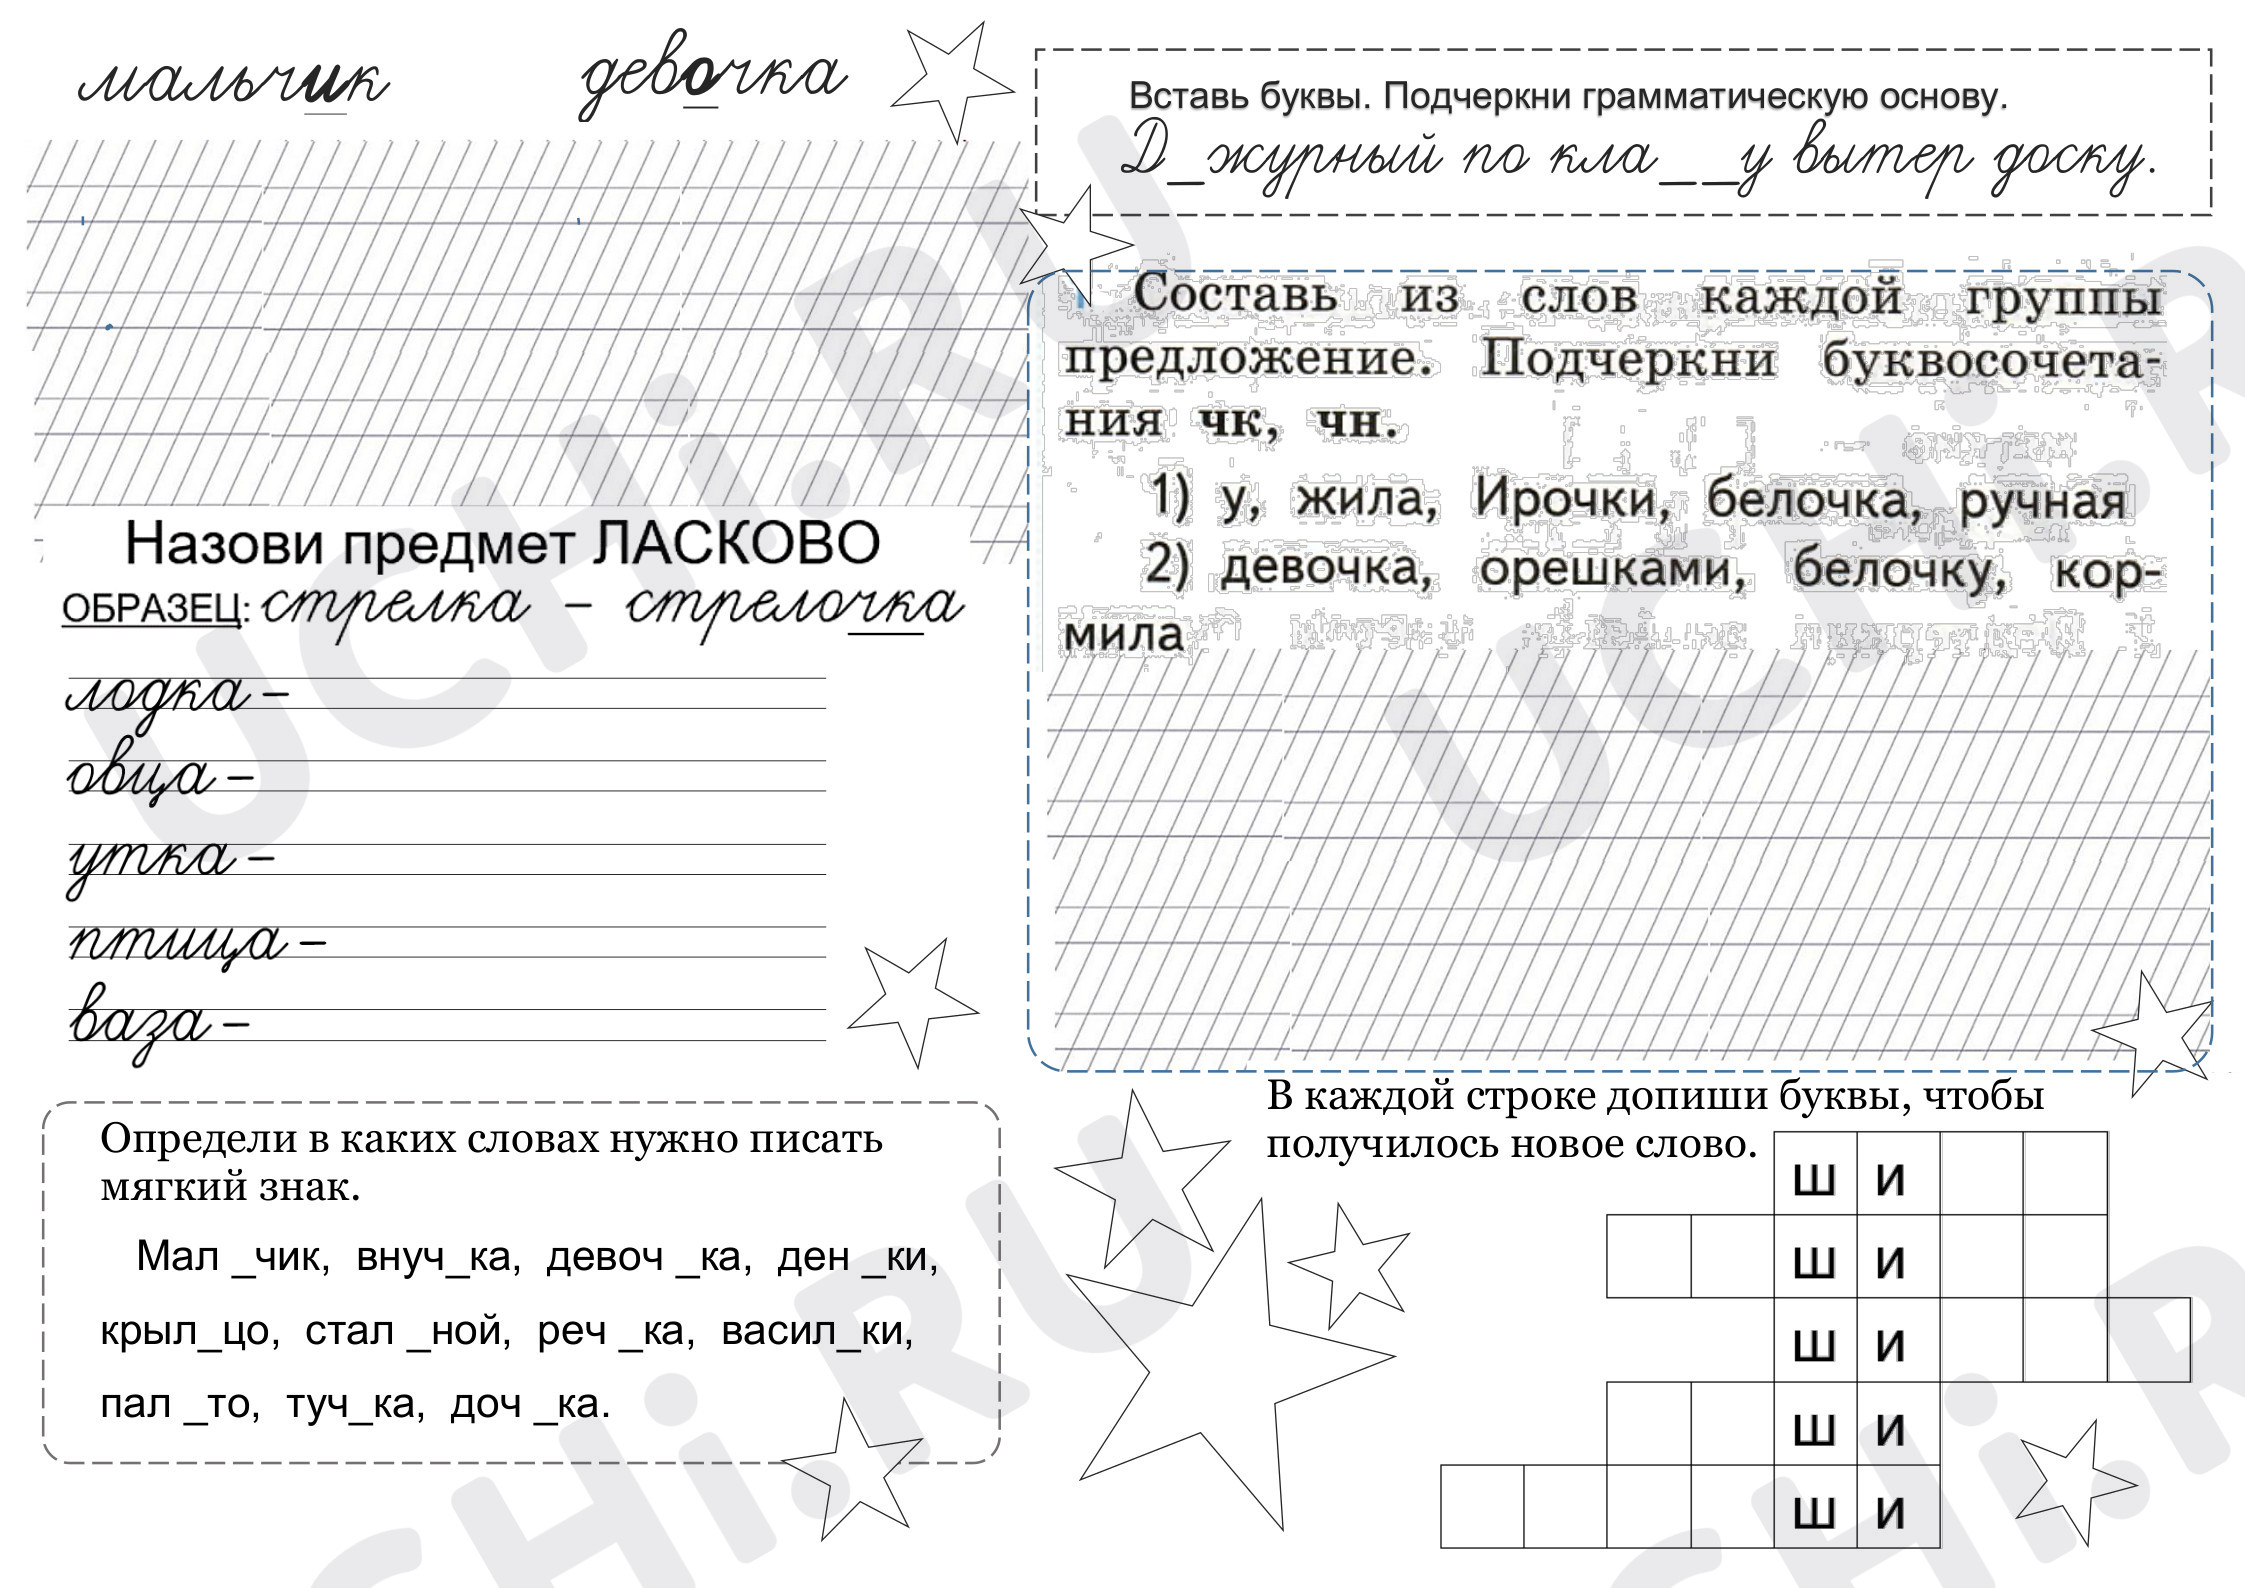 мальчик девочка
Назови предмет ЛАСКОВО
ОБРАЗЕЦ: стрелка – стрелочка
лодка –
овца –
утка –
птица –
ваза –
Определи в каких словах нужно писать
мягкий знак.
Мал _чик, внуч_ка, девоч _ка, ден _ки,
крыл_цо, стал _ной, реч _ка, васил_ки,
пал _то, туч_ка, доч _ка.
Вставь буквы. Подчеркни грамматическую основу.
Д_журный по кла__у вытер доску.
Составь из слов каждой группы
предложение. Подчеркни буквосочета-
ния чк, чн.
1) у, жила, Ирочки, белочка, ручная
2) девочка, орешками, белочку, кор-
мила
В каждой строке допиши буквы, чтобы
получилось новое слово.
Ш И
Ш И
Ш И
Ш И
Ш И
UCHi.RU
UCHi.R
CHi.RU
CHi.R